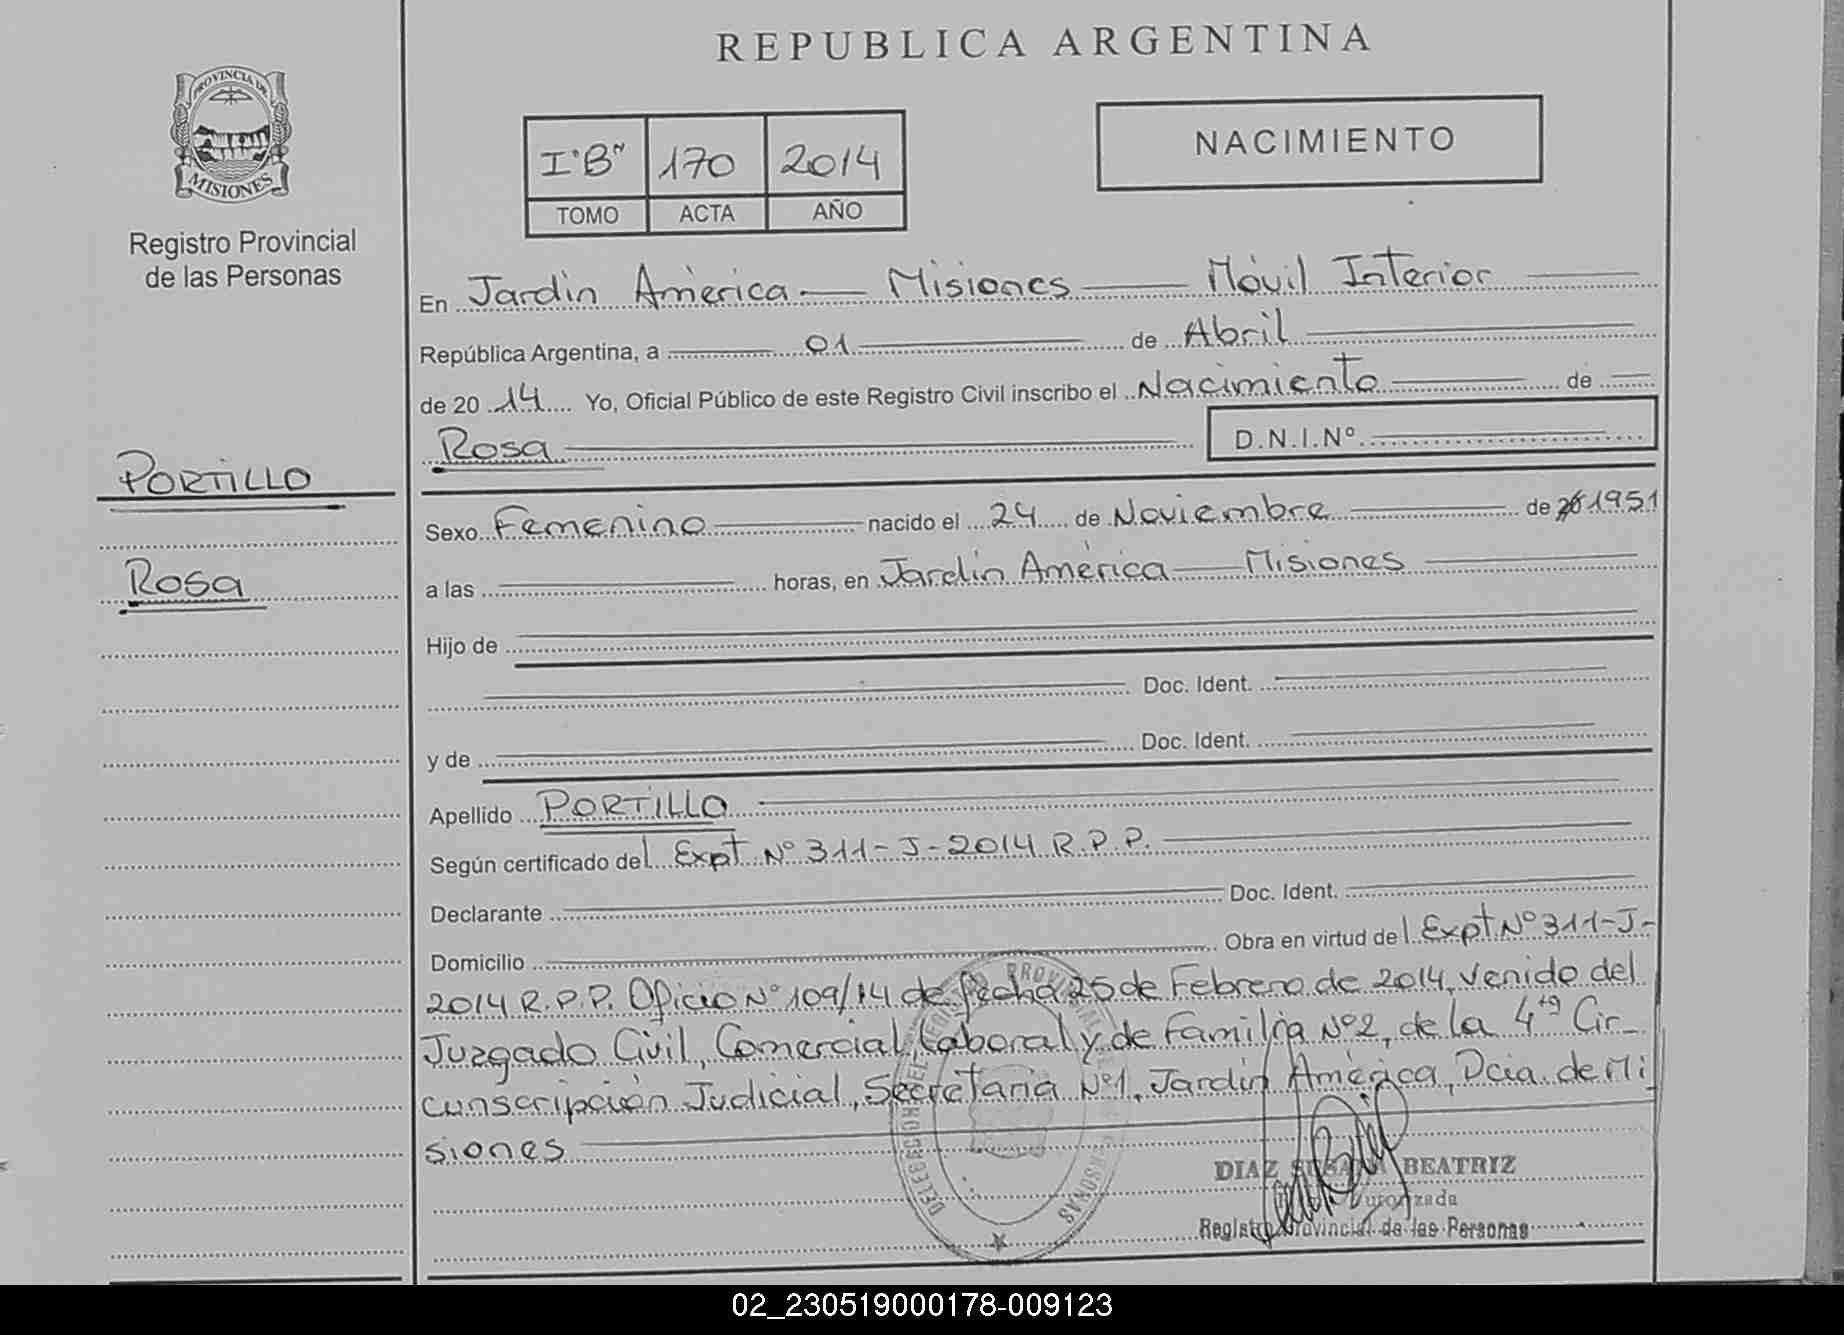 REPUBLICA ARGENTINA
PROVINCIA DE
MISIONES
Registro Provincial
de las Personas
I°"B" 170 2014
TOMO ACTA AÑO
NACIMIENTO
En Jardín América - Misiones - Móvil Interior
República Argentina, a 01 de Abril
de 2014 Yo, Oficial Público de este Registro Civil inscribo el Nacimiento de
Rosa D.N.I.N°
PORTILLO
Rosa
Sexo Femenino nacido el 24 de Noviembre de 20 1951
a las horas, en Jardín América - Misiones
Hijo de
Doc. Ident.
y de Doc. Ident.
Apellido PORTILLO
Según certificado del Expt N° 311-J-2014 R.P.P.
Declarante Doc. Ident.
Domicilio Obra en virtud del Expt N° 311-J-
2014 R.P.P. Oficio N° 109/14 de fecha 25 de Febrero de 2014, venido del
Juzgado Civil, Comercial, Laboral y de Familia N°2, de la 4ta Cir-
cunscripción Judicial, Secretaría N°1, Jardín América, Pcia. de Mi
siones
DIAZ SUSANA BEATRIZ
Autorizada
Registro Provincial de las Personas
02_230519000178-009123